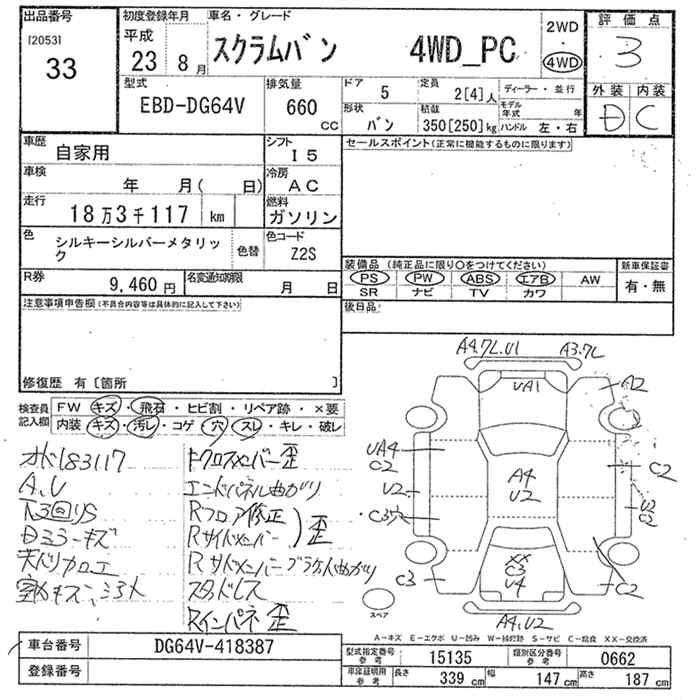 出品番号
[2053]
33
初度登録年月
平成
23 8月
車名・グレード
スクラムバン 4WD_PC
2WD
・
4WD
評価点
3
外装 内装
D C
型式
EBD-DG64V
排気量
660 cc
ドア 5
形状 バン
定員 2[4]人
積載 350[250]kg
ディーラー・並行
モデル年式 年
ハンドル 左・右
車歴 自家用
シフト I5
車検 年 月( 日)
冷房 AC
走行 18万3千117 km
燃料 ガソリン
色 シルキーシルバーメタリック
色替
色コード Z2S
R券 9,460円
名変通知期限 月 日
セールスポイント(正常に機能するものに限ります)
装備品 (純正品に限り○をつけてください)
PS PW ABS エアB AW
SR ナビ TV カワ
新車保証書
有・無
後日品
注意事項申告欄(不具合内容等は具体的に記入して下さい)
修復歴 有〔箇所 〕
検査員記入欄
FW キズ・飛石・ヒビ割・リペア跡・×要
内装 キズ・汚レ・コゲ・穴・スレ・キレ・破レ
A、U
Dミラーキズ
スタッドレス
Rインパネ歪
エンドパネル曲がり
Rフロア修正
Rサイドメンバー
歪
A4.7L.U1
A3.7L
UA1
A2
UA4
C2
C2
U2
A4
U2
U2
C2
C3穴
C3
XX
C3
U4
C2
A4.U2
スペア
A−キズ E−エクボ U−凹み W−補修跡 S−サビ C−腐食 XX−交換済
車台番号 DG64V-418387
登録番号
型式指定番号 参考 15135
類別区分番号 参考 0662
車庫証明用 参考
長さ 339 cm
幅 147 cm
高さ 187 cm